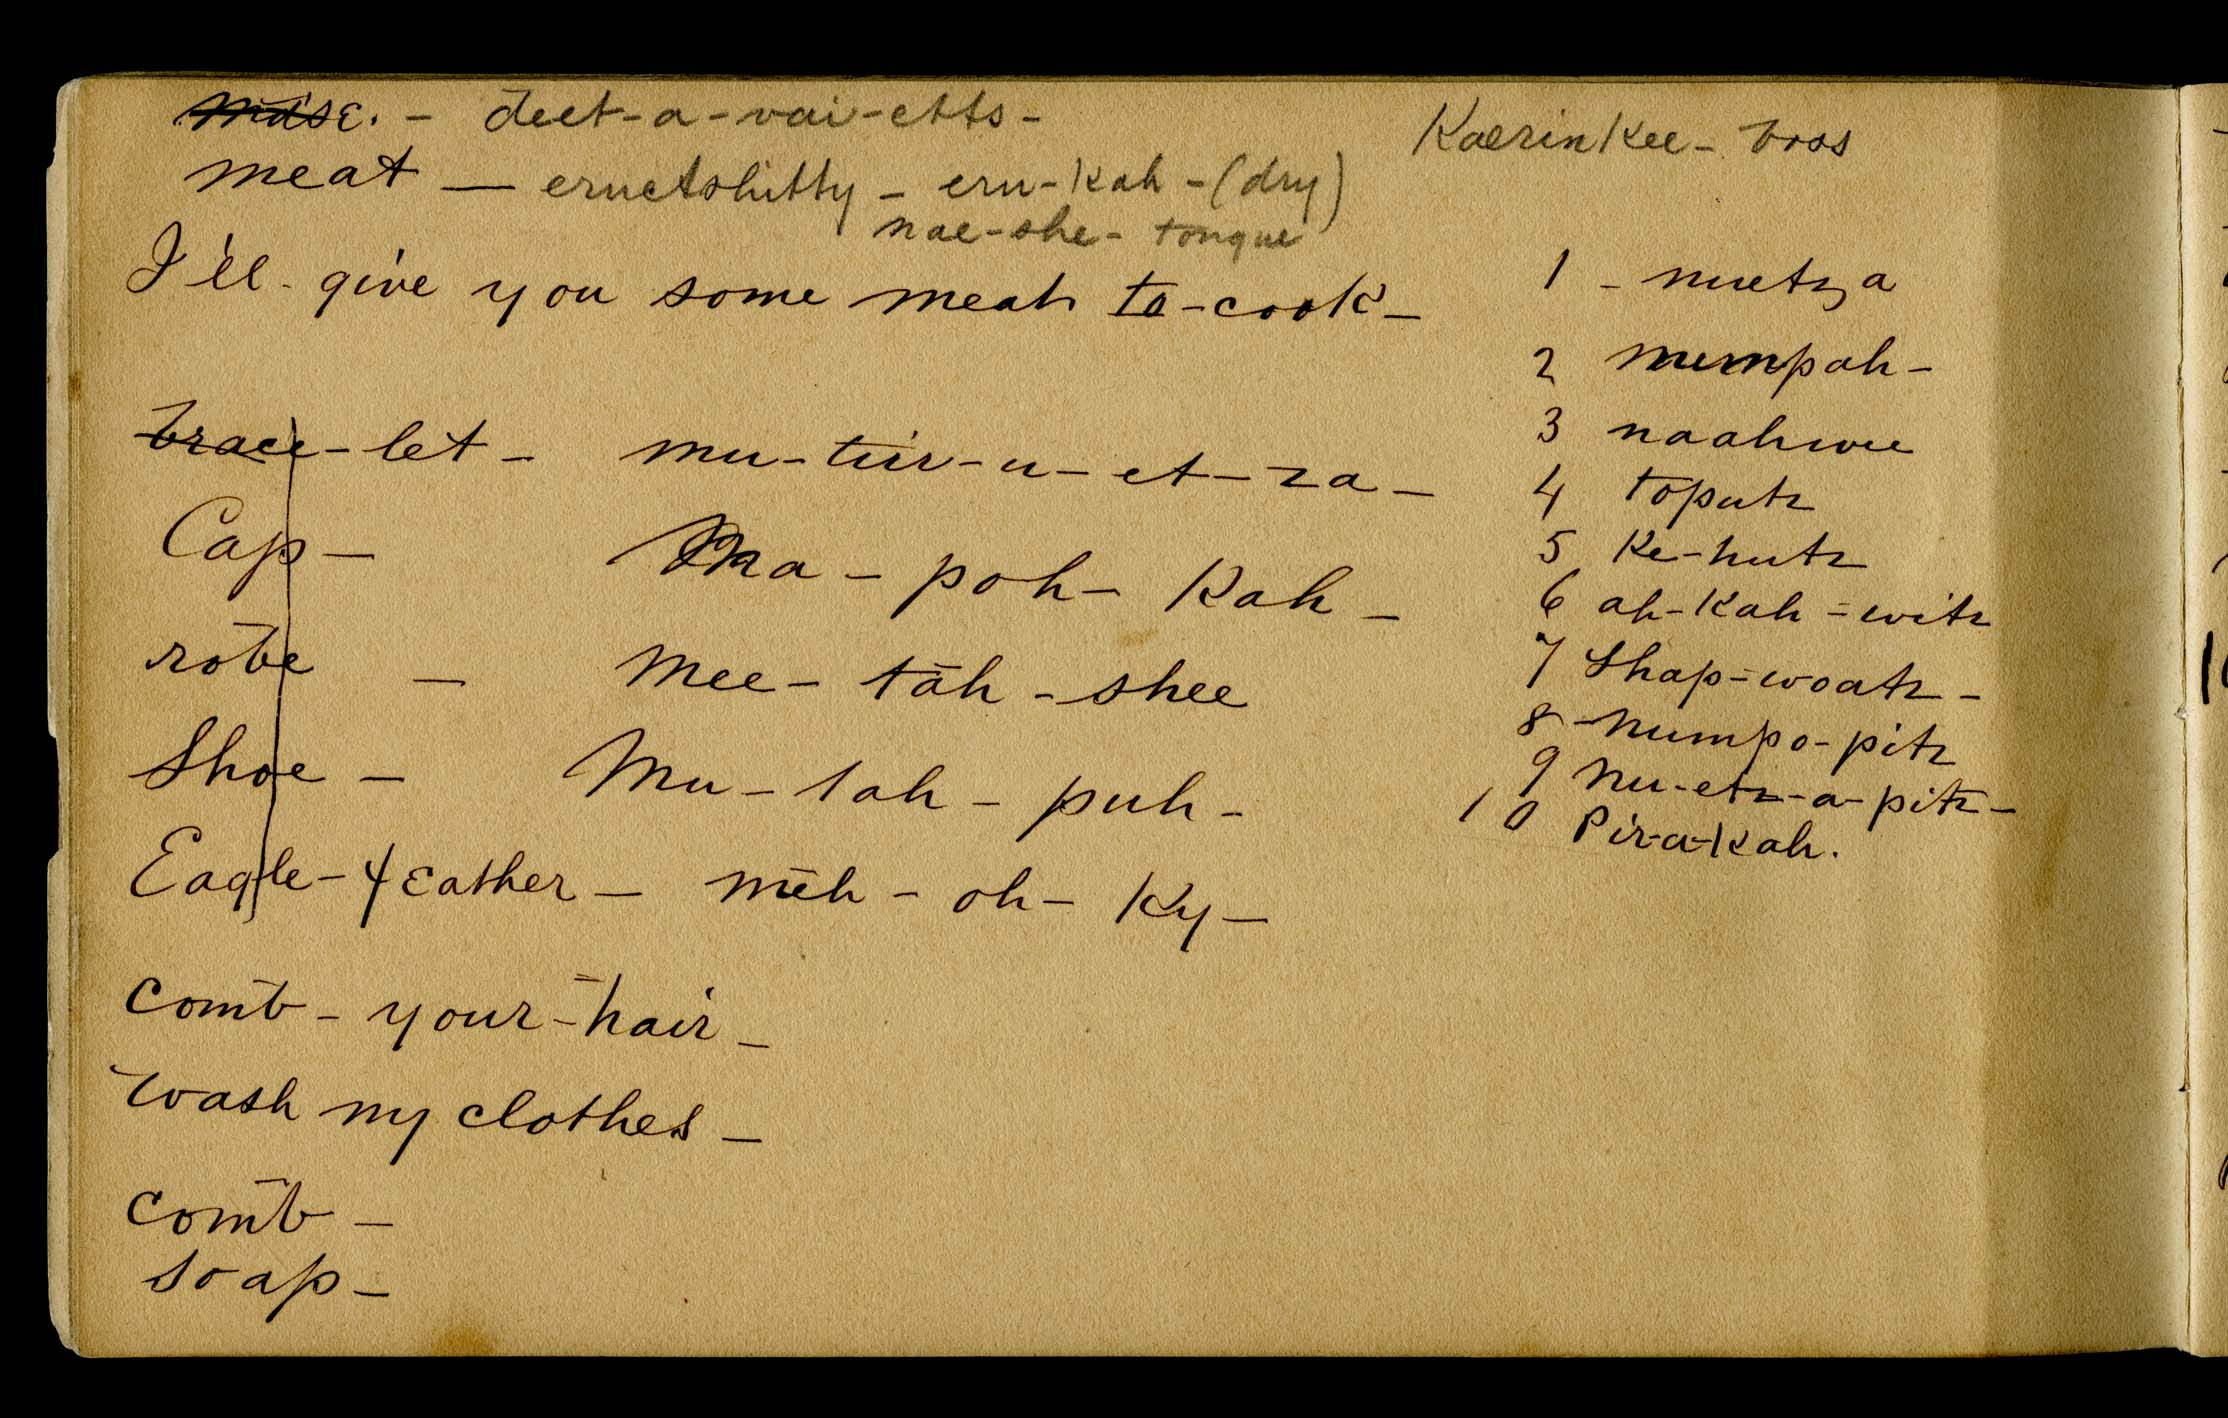 mdse. - deet-a-vai-etts-
meat — eructshitty - eru-kah - (dry)
nae-she- tongue
I'll give you some meat to-cook-
brace-let - mu-tiir-u-et-za-
Cap - Ma-poh-Kah-
robe - Mee-tāh-shee
Shoe - Mu-tah-puh-
Eagle-feather - mēh-oh-Ky-
comb-your-hair-
wash my clothes-
comb-
soap-
Kaerinkee- boss
1 - nuetza
2 mumpah-
3 naahwee
4 toputz
5 Ke-hutz
6 ah-Kah=witz
7 Shap=woatz-
8 - numpo-pitz
9 nu-etz-a-pitz-
10 Pir-a-Kah.